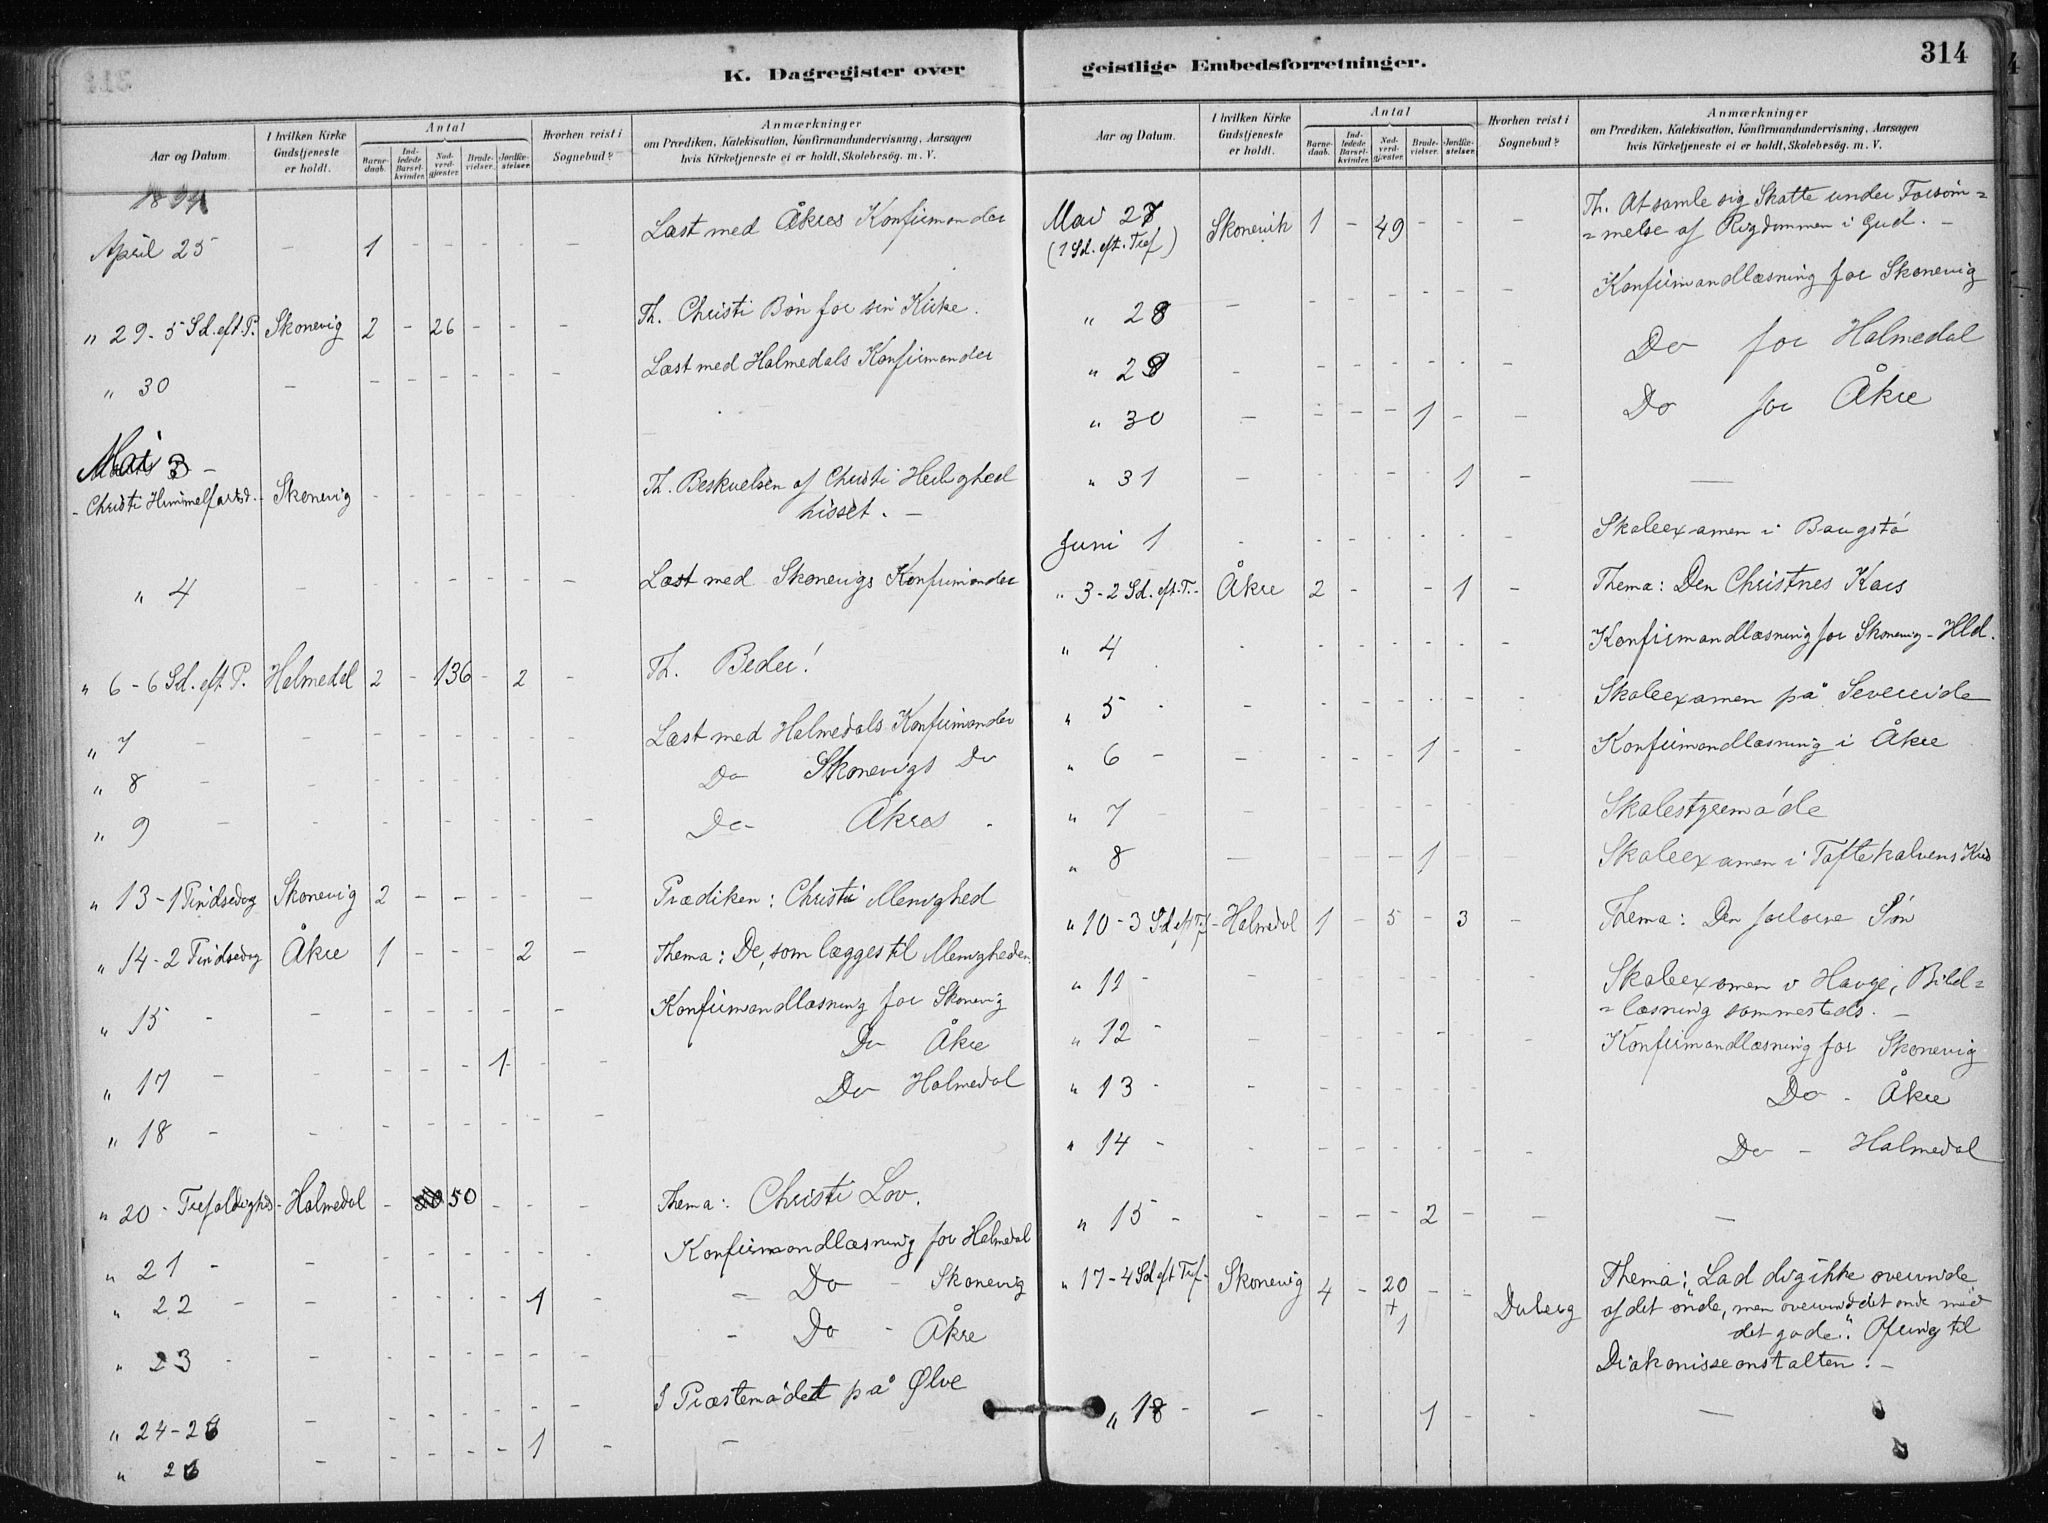 K. Dagregister over
Aar og Datum.
I hvilken Kirke Gudstjeneste er holdt.
Antal
Barne-daab.
Ind-ledede Barsel-kvinder.
Nad-verd-gjæster.
Brude-vielser.
Jordfæ-stelser.
Hvorhen reist i Sognebud?
Anmærkninger
om Prædiken, Katekisation, Konfirmandundervisning, Aarsagen
hvis Kirketjeneste ei er holdt, Skolebesög. m. V.
1894
April 25 - 1 - - - - - Læst med Åkres Konfirmander
" 29 - 5 Sd. eft. P. Skonevig 2 - 26 - - - Th. Christi Bøn for sin Kirke.
" 30 - - - - - - - Læst med Holmedals Konfirmander
Mai 3 -
- Christi Himmelfartsd. - Skonevig - - - - - - Th. Beskuelsen af Christi Herlighed
hisset. -
" 4 - - - - - - - Læst med Skonevigs Konfirmander
" 6 - 6 Sd. eft. P. Holmedal 2 - 136 - 2 - Th. Beder!
" 7 - - - - - - - Læst med Holmedals Konfirmander
" 8 - - - - - - - Do Skonevigs Do
" 9 - - - - - - - Do Åkres -
" 13 - 1 Pindsedag Skonevig 2 - - - - - Prædiken: Christi Menighed
" 14 - 2 Pindsedag Åkre 1 - - - 2 - Thema: De, som lægges til Menigheden.
" 15 - - - - - - - Konfirmandlæsning for Skonevig
" 17 - - - - - 1 - - Do Åkre
" 18 - - - - - - - Do Holmedal
" 20 - Trefoldighed - Holmedal - 50 - - - Thema: Christi Lov.
" 21 - - - - - - - Konfirmandlæsning for Holmedal
" 22 - - - - - - 1 - - Do - Skonevig
" 23 - - - - - - - - Do - Åkre
" 24-26 - - - - - - - I Præstemødet på Ølve
" 26 - - - - - 1 - -
geistlige Embedsforretninger.
314
Aar og Datum.
I hvilken Kirke Gudstjeneste er holdt.
Antal
Barne-daab.
Ind-ledede Barsel-kvinder.
Nad-verd-gjæster.
Brude-vielser.
Jordfæ-stelser.
Hvorhen reist i Sognebud?
Anmærkninger
om Prædiken, Katekisation, Konfirmandundervisning, Aarsagen
hvis Kirketjeneste ei er holdt, Skolebesög. m. V.
Mai 27 Skonevik 1 - 49 - - - Th. At samle sig Skatte under Forsøm=
(1 Sd. eft. Tref) =melse af Rigdommen i Gud. -
" 28 - - - - - - - Konfirmandlæsning for Skonevig
" 29 - - - - - - - Do for Holmedal
" 30 - - - - 1 - - Do for Åkre
" 31 - - - - - 1 - -
Juni 1 - - - - - - - Skoleexamen i Baugstø
" 3 - 2 Sd. eft. T. - Åkre 2 - - 1 - Thema: Den Christnes Kors
" 4 - - - - - - - Konfirmandlæsning for Skonevig - Hld.
" 5 - - - - - - - Skoleexamen på Severeide
" 6 - - - - - 1 - - Konfirmandlæsning i Åkre
" 7 - - - - - - - Skolestyremøde
" 8 - - - - 1 - - Skoleexamen i Toftekalvens Krd
" 10 - 3 Sd eft Tf - Holmedal 1 - 5 - 3 - Thema: Den forlorne Søn
" 11 - - - - - - - Skoleexamen v Hauge, Bibel=
=læsning sammesteds. -
" 12 - - - - - - - Konfirmandlæsning for Skonevig
" 13 - - - - - - - Do - Åkre
" 14 - - - - - - - Do - Holmedal
" 15 - - - - - 2 - - -
" 17 - 4 Sd eft Tref - Skonevig 4 - 20 + 1 - - Thema: "Lad dig ikke overvinde
af det onde, men overvind det onde med
det gode". Ofring til
Diakonisseanstalten. -
" 18 - - - - 1 - - -